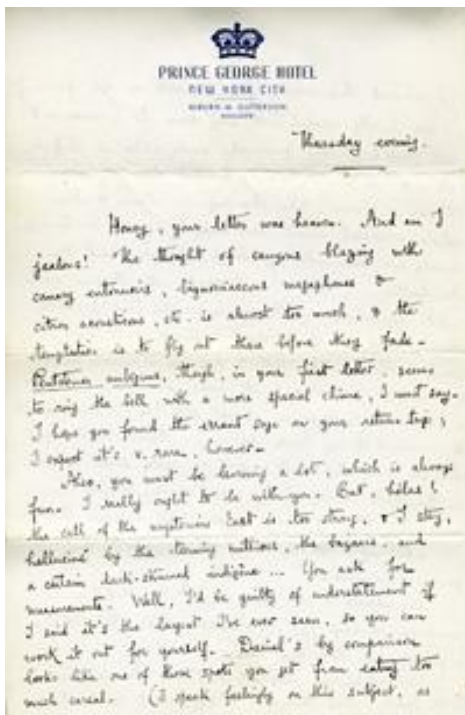 PRINCE GEORGE HOTEL
NEW YORK CITY
MANAGER
Thursday evening.
Honey, your letter was heaven. And am I
jealous! The thought of canyons blazing with
canary &
citron etc. is almost too much, & the
temptation is to fly out there before they fade.
Penstemon ambiguus, though, in your first letter, seems
to ring the bell with a more special chime, I must say.
I hope you found the errant sage on your return trip;
I expect it's v. rare, however.
Also, you must be learning a lot, which is always
fun. I really ought to be with you. But, hélas!
the call of the mysterious East is too strong, & I stay,
by the teeming millions, the bazaars, and
a certain indigène ... You ask for
measurements. Well, I'd be guilty of understatement if
I said it's the largest I've ever seen, so you can
work it out for yourself. Daniel's by comparison
looks like one of those spots you get from eating too
much cereal. (I speak feelingly on this subject, as